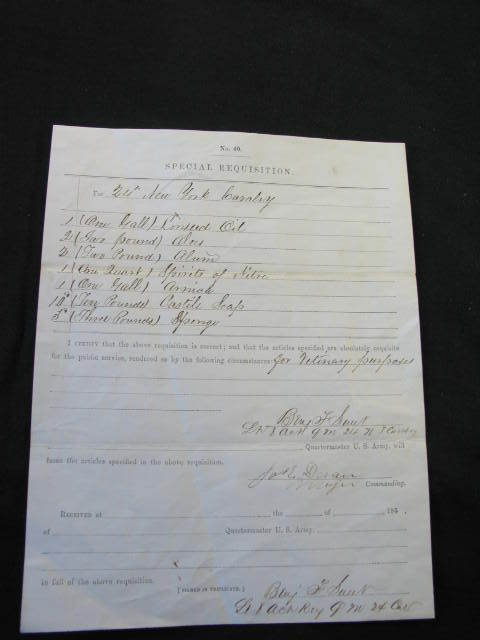 No. 40.
SPECIAL REQUISITION.
For 24th New York Cavalry
1 (One Gall) Linseed Oil
2 (Two pound) Aloes
2 (Two Pounds) Alum
1 (One Quart) Spirits of Nitre
1 (One Gall) Arnica
10 (Ten Pounds) Castile Soap
3 (Three Pounds) Sponge
I CERTIFY that the above requisition is correct; and that the articles specified are absolutely requisite
for the public service, rendered so by the following circumstances: for Vetinary purposes
Benj F
Lt & Act Q M 24 N Y Cavalry
Quartermaster U. S. Army, will
issue the articles specified in the above requisition.
Major Commanding.
RECEIVED at the of 185 .
of Quartermaster U. S. Army.
in full of the above requisition.
[SIGNED IN TRIPLICATE.]
Benj F
Lt & Act Q M 24 Cav